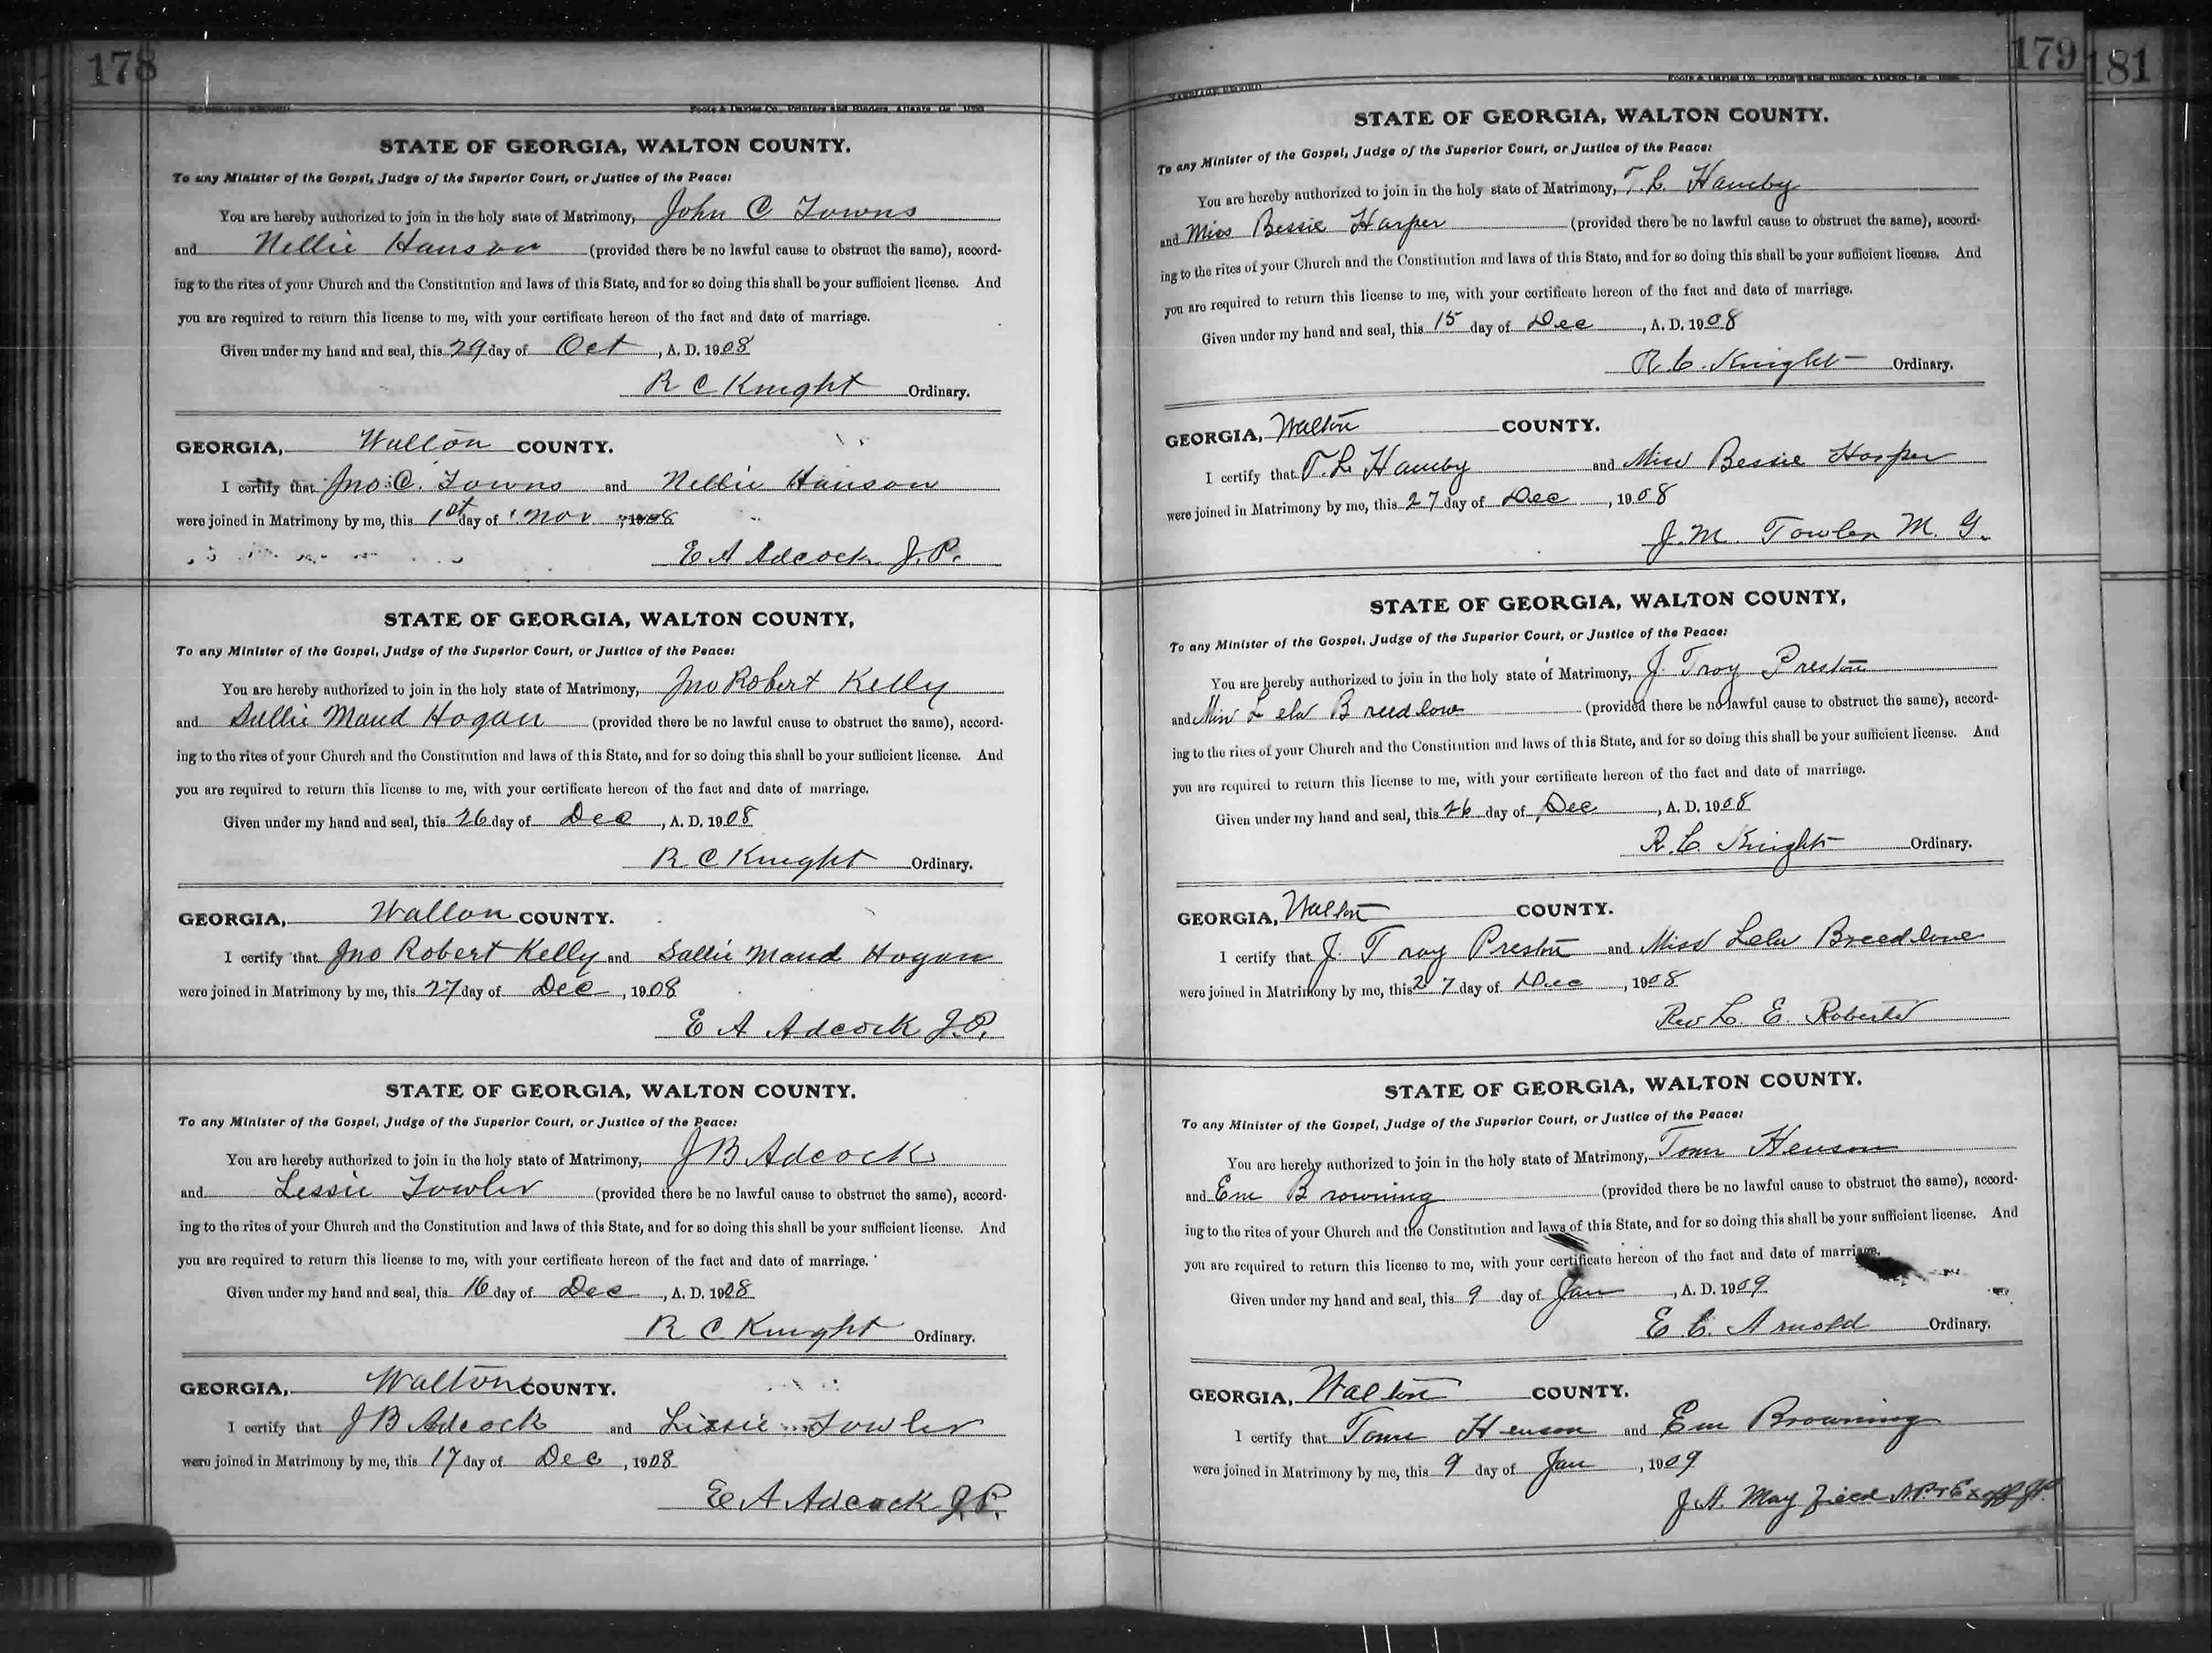 178
MARRIAGE RECORD
Foote & Davies Co., Printers and Binders, Atlanta, Ga.
STATE OF GEORGIA, WALTON COUNTY.
To any Minister of the Gospel, Judge of the Superior Court, or Justice of the Peace:
You are hereby authorized to join in the holy state of Matrimony, John C Towns
and Nellie Hanson (provided there be no lawful cause to obstruct the same), accord-
ing to the rites of your Church and the Constitution and laws of this State, and for so doing this shall be your sufficient license. And
you are required to return this license to me, with your certificate hereon of the fact and date of marriage.
Given under my hand and seal, this 29 day of Oct, A. D. 1908
R C Knight Ordinary.
GEORGIA, Walton COUNTY.
I certify that Jno. C. Towns and Nellie Hanson
were joined in Matrimony by me, this 1st day of Nov, 1908
E A Adcock J.P.
STATE OF GEORGIA, WALTON COUNTY,
To any Minister of the Gospel, Judge of the Superior Court, or Justice of the Peace:
You are hereby authorized to join in the holy state of Matrimony, Jno Robert Kelly
and Sallie Maud Hogan (provided there be no lawful cause to obstruct the same), accord-
ing to the rites of your Church and the Constitution and laws of this State, and for so doing this shall be your sufficient license. And
you are required to return this license to me, with your certificate hereon of the fact and date of marriage.
Given under my hand and seal, this 26 day of Dec, A. D. 1908
R C Knight Ordinary.
GEORGIA, Walton COUNTY.
I certify that Jno Robert Kelly and Sallie Maud Hogan
were joined in Matrimony by me, this 27 day of Dec, 1908
E A Adcock J.P.
STATE OF GEORGIA, WALTON COUNTY.
To any Minister of the Gospel, Judge of the Superior Court, or Justice of the Peace:
You are hereby authorized to join in the holy state of Matrimony, J B Adcock
and Lessie Fowler (provided there be no lawful cause to obstruct the same), accord-
ing to the rites of your Church and the Constitution and laws of this State, and for so doing this shall be your sufficient license. And
you are required to return this license to me, with your certificate hereon of the fact and date of marriage.
Given under my hand and seal, this 16 day of Dec, A. D. 1908
R C Knight Ordinary.
GEORGIA, Walton COUNTY.
I certify that J B Adcock and Lissie Fowler
were joined in Matrimony by me, this 17 day of Dec, 1908
E A Adcock J.P.
179
181
MARRIAGE RECORD
Foote & Davies Co., Printers and Binders, Atlanta, Ga.
STATE OF GEORGIA, WALTON COUNTY.
To any Minister of the Gospel, Judge of the Superior Court, or Justice of the Peace:
You are hereby authorized to join in the holy state of Matrimony, T. L. Hamby
and Miss Bessie Harper (provided there be no lawful cause to obstruct the same), accord-
ing to the rites of your Church and the Constitution and laws of this State, and for so doing this shall be your sufficient license. And
you are required to return this license to me, with your certificate hereon of the fact and date of marriage.
Given under my hand and seal, this 15 day of Dec, A. D. 1908
R. C. Knight Ordinary.
GEORGIA, Walton COUNTY.
I certify that T. L. Hamby and Miss Bessie Harper
were joined in Matrimony by me, this 27 day of Dec, 1908
J. M. Towler M. G.
STATE OF GEORGIA, WALTON COUNTY,
To any Minister of the Gospel, Judge of the Superior Court, or Justice of the Peace:
You are hereby authorized to join in the holy state of Matrimony, J. Troy Preston
and Miss Lela Breedlove (provided there be no lawful cause to obstruct the same), accord-
ing to the rites of your Church and the Constitution and laws of this State, and for so doing this shall be your sufficient license. And
you are required to return this license to me, with your certificate hereon of the fact and date of marriage.
Given under my hand and seal, this 26 day of Dec, A. D. 1908
R. C. Knight Ordinary.
GEORGIA, Walton COUNTY.
I certify that J. Troy Preston and Miss Lela Breedlove
were joined in Matrimony by me, this 27 day of Dec, 1908
Rev L. E. Roberts
STATE OF GEORGIA, WALTON COUNTY.
To any Minister of the Gospel, Judge of the Superior Court, or Justice of the Peace:
You are hereby authorized to join in the holy state of Matrimony, Tom Henson
and Em Browning (provided there be no lawful cause to obstruct the same), accord-
ing to the rites of your Church and the Constitution and laws of this State, and for so doing this shall be your sufficient license. And
you are required to return this license to me, with your certificate hereon of the fact and date of marriage.
Given under my hand and seal, this 9 day of Jan, A. D. 1909
E. C. Arnold Ordinary.
GEORGIA, Walton COUNTY.
I certify that Tom Henson and Em Browning
were joined in Matrimony by me, this 9 day of Jan, 1909
J. H. Mayfield N.P. & Ex off J.P.